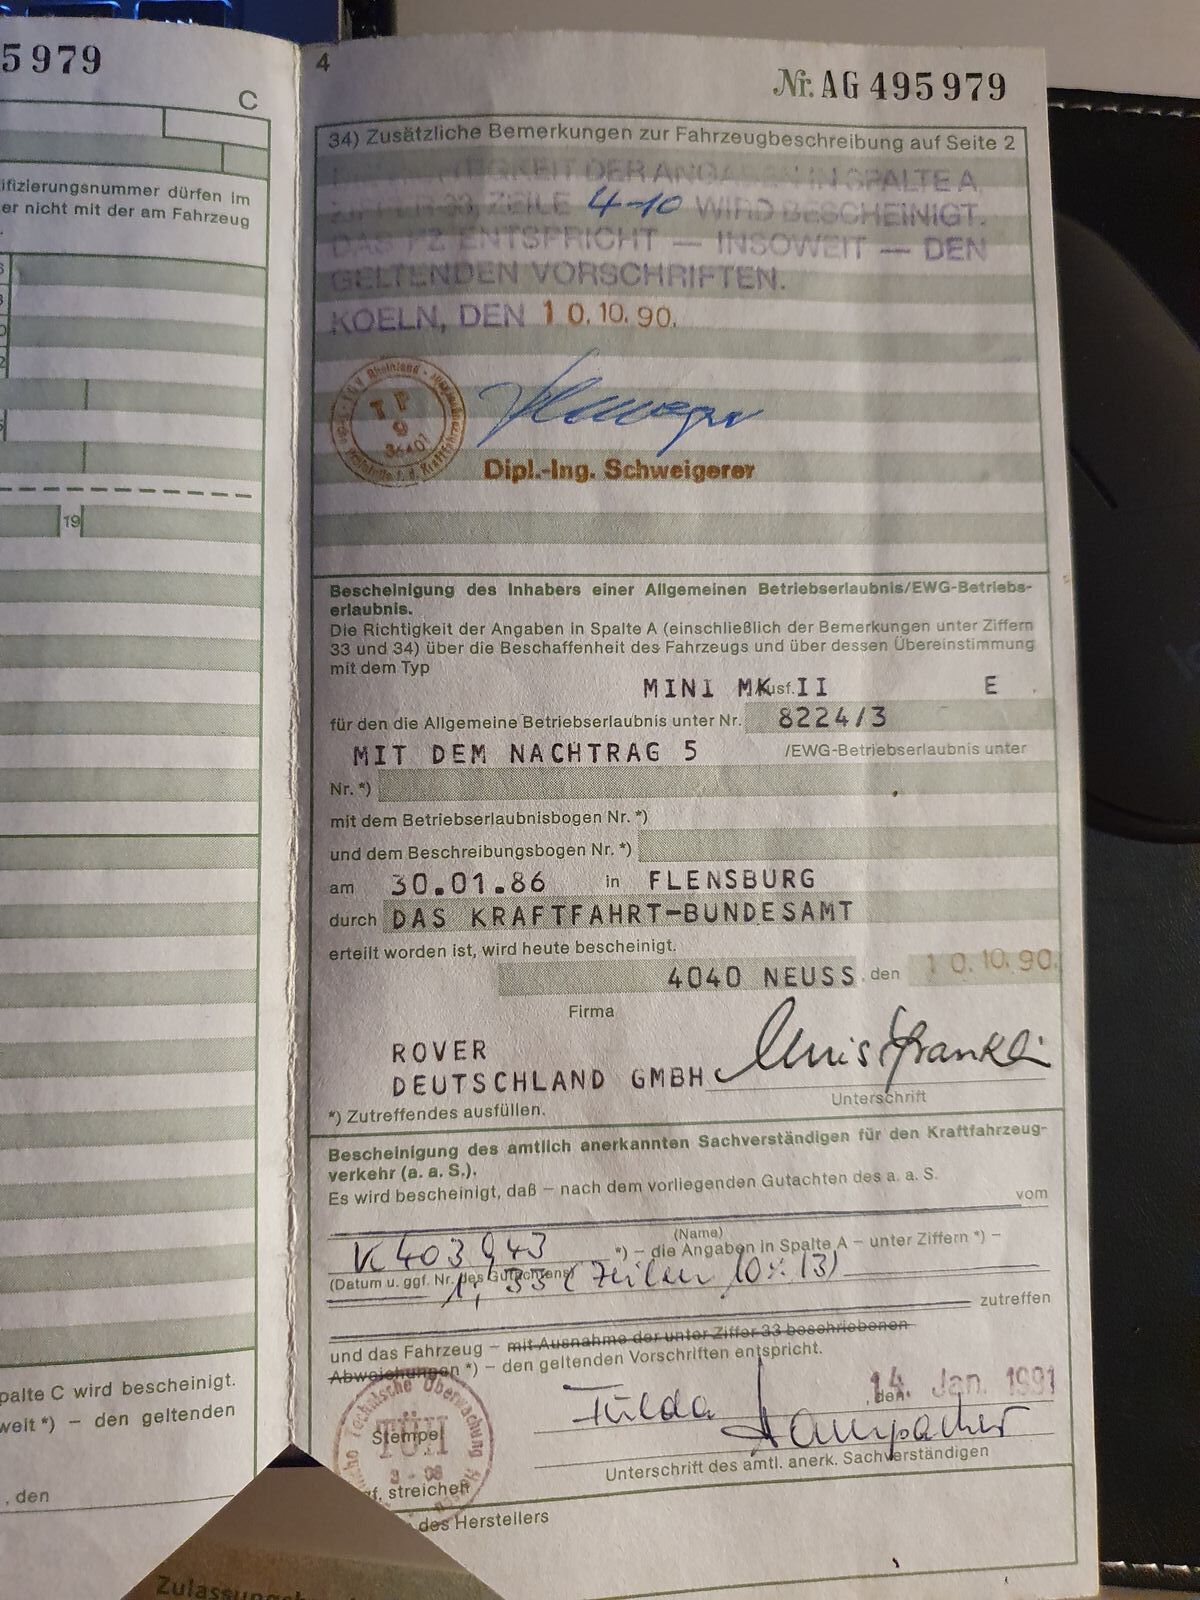 5979
C
ifizierungsnummer dürfen im
er nicht mit der am Fahrzeug
19
palte C wird bescheinigt.
weit *) – den geltenden
, den
4
Nr. AG 495979
34) Zusätzliche Bemerkungen zur Fahrzeugbeschreibung auf Seite 2
DER ANGABEN IN SPALTE A,
ZIFFER 33, ZEILE 4-10 WIRD BESCHEINIGT.
DAS FZ ENTSPRICHT — INSOWEIT — DEN
GELTENDEN VORSCHRIFTEN.
KOELN, DEN 10.10.90.
TÜV Rheinland
TP
9
Dipl.-Ing. Schweigerer
Bescheinigung des Inhabers einer Allgemeinen Betriebserlaubnis/EWG-Betriebs-
erlaubnis.
Die Richtigkeit der Angaben in Spalte A (einschließlich der Bemerkungen unter Ziffern
33 und 34) über die Beschaffenheit des Fahrzeugs und über dessen Übereinstimmung
mit dem Typ
MINI MK usf. II E
für den die Allgemeine Betriebserlaubnis unter Nr. 8224/3
MIT DEM NACHTRAG 5 /EWG-Betriebserlaubnis unter
Nr. *)
mit dem Betriebserlaubnisbogen Nr. *)
und dem Beschreibungsbogen Nr. *)
am 30.01.86 in FLENSBURG
durch DAS KRAFTFAHRT-BUNDESAMT
erteilt worden ist, wird heute bescheinigt.
4040 NEUSS, den 10.10.90.
Firma
ROVER
DEUTSCHLAND GMBH Chris Franklin
Unterschrift
*) Zutreffendes ausfüllen.
Bescheinigung des amtlich anerkannten Sachverständigen für den Kraftfahrzeug-
verkehr (a. a. S.).
Es wird bescheinigt, daß – nach dem vorliegenden Gutachten des a. a. S.
vom
(Name)
K 403 943 *) – die Angaben in Spalte A – unter Ziffern *) –
(Datum u. ggf. Nr. des Gutachtens)
1, 33 (Zeilen 10 % 13)
zutreffen
und das Fahrzeug – mit Ausnahme der unter Ziffer 33 beschriebenen
Abweichungen *) – den geltenden Vorschriften entspricht.
Fulda, den 14. Jan. 1991
Technische Überwachung
TÜH
Stempel
Unterschrift des amtl. anerk. Sachverständigen
gf. streichen
des Herstellers